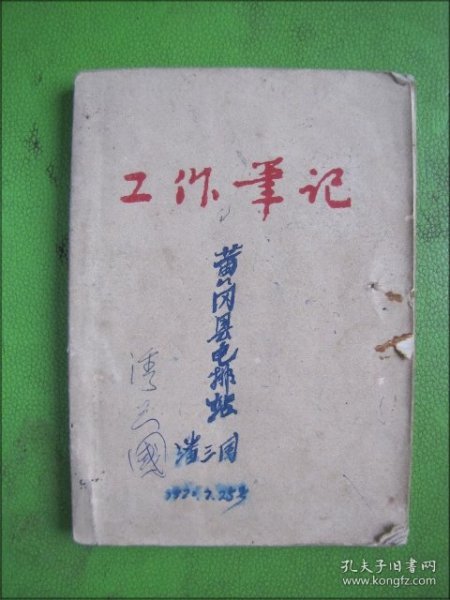 工作筆记
黄冈县电排站
潘三国
潘三國
7.25号
孔夫子旧书网
www.kongfz.com